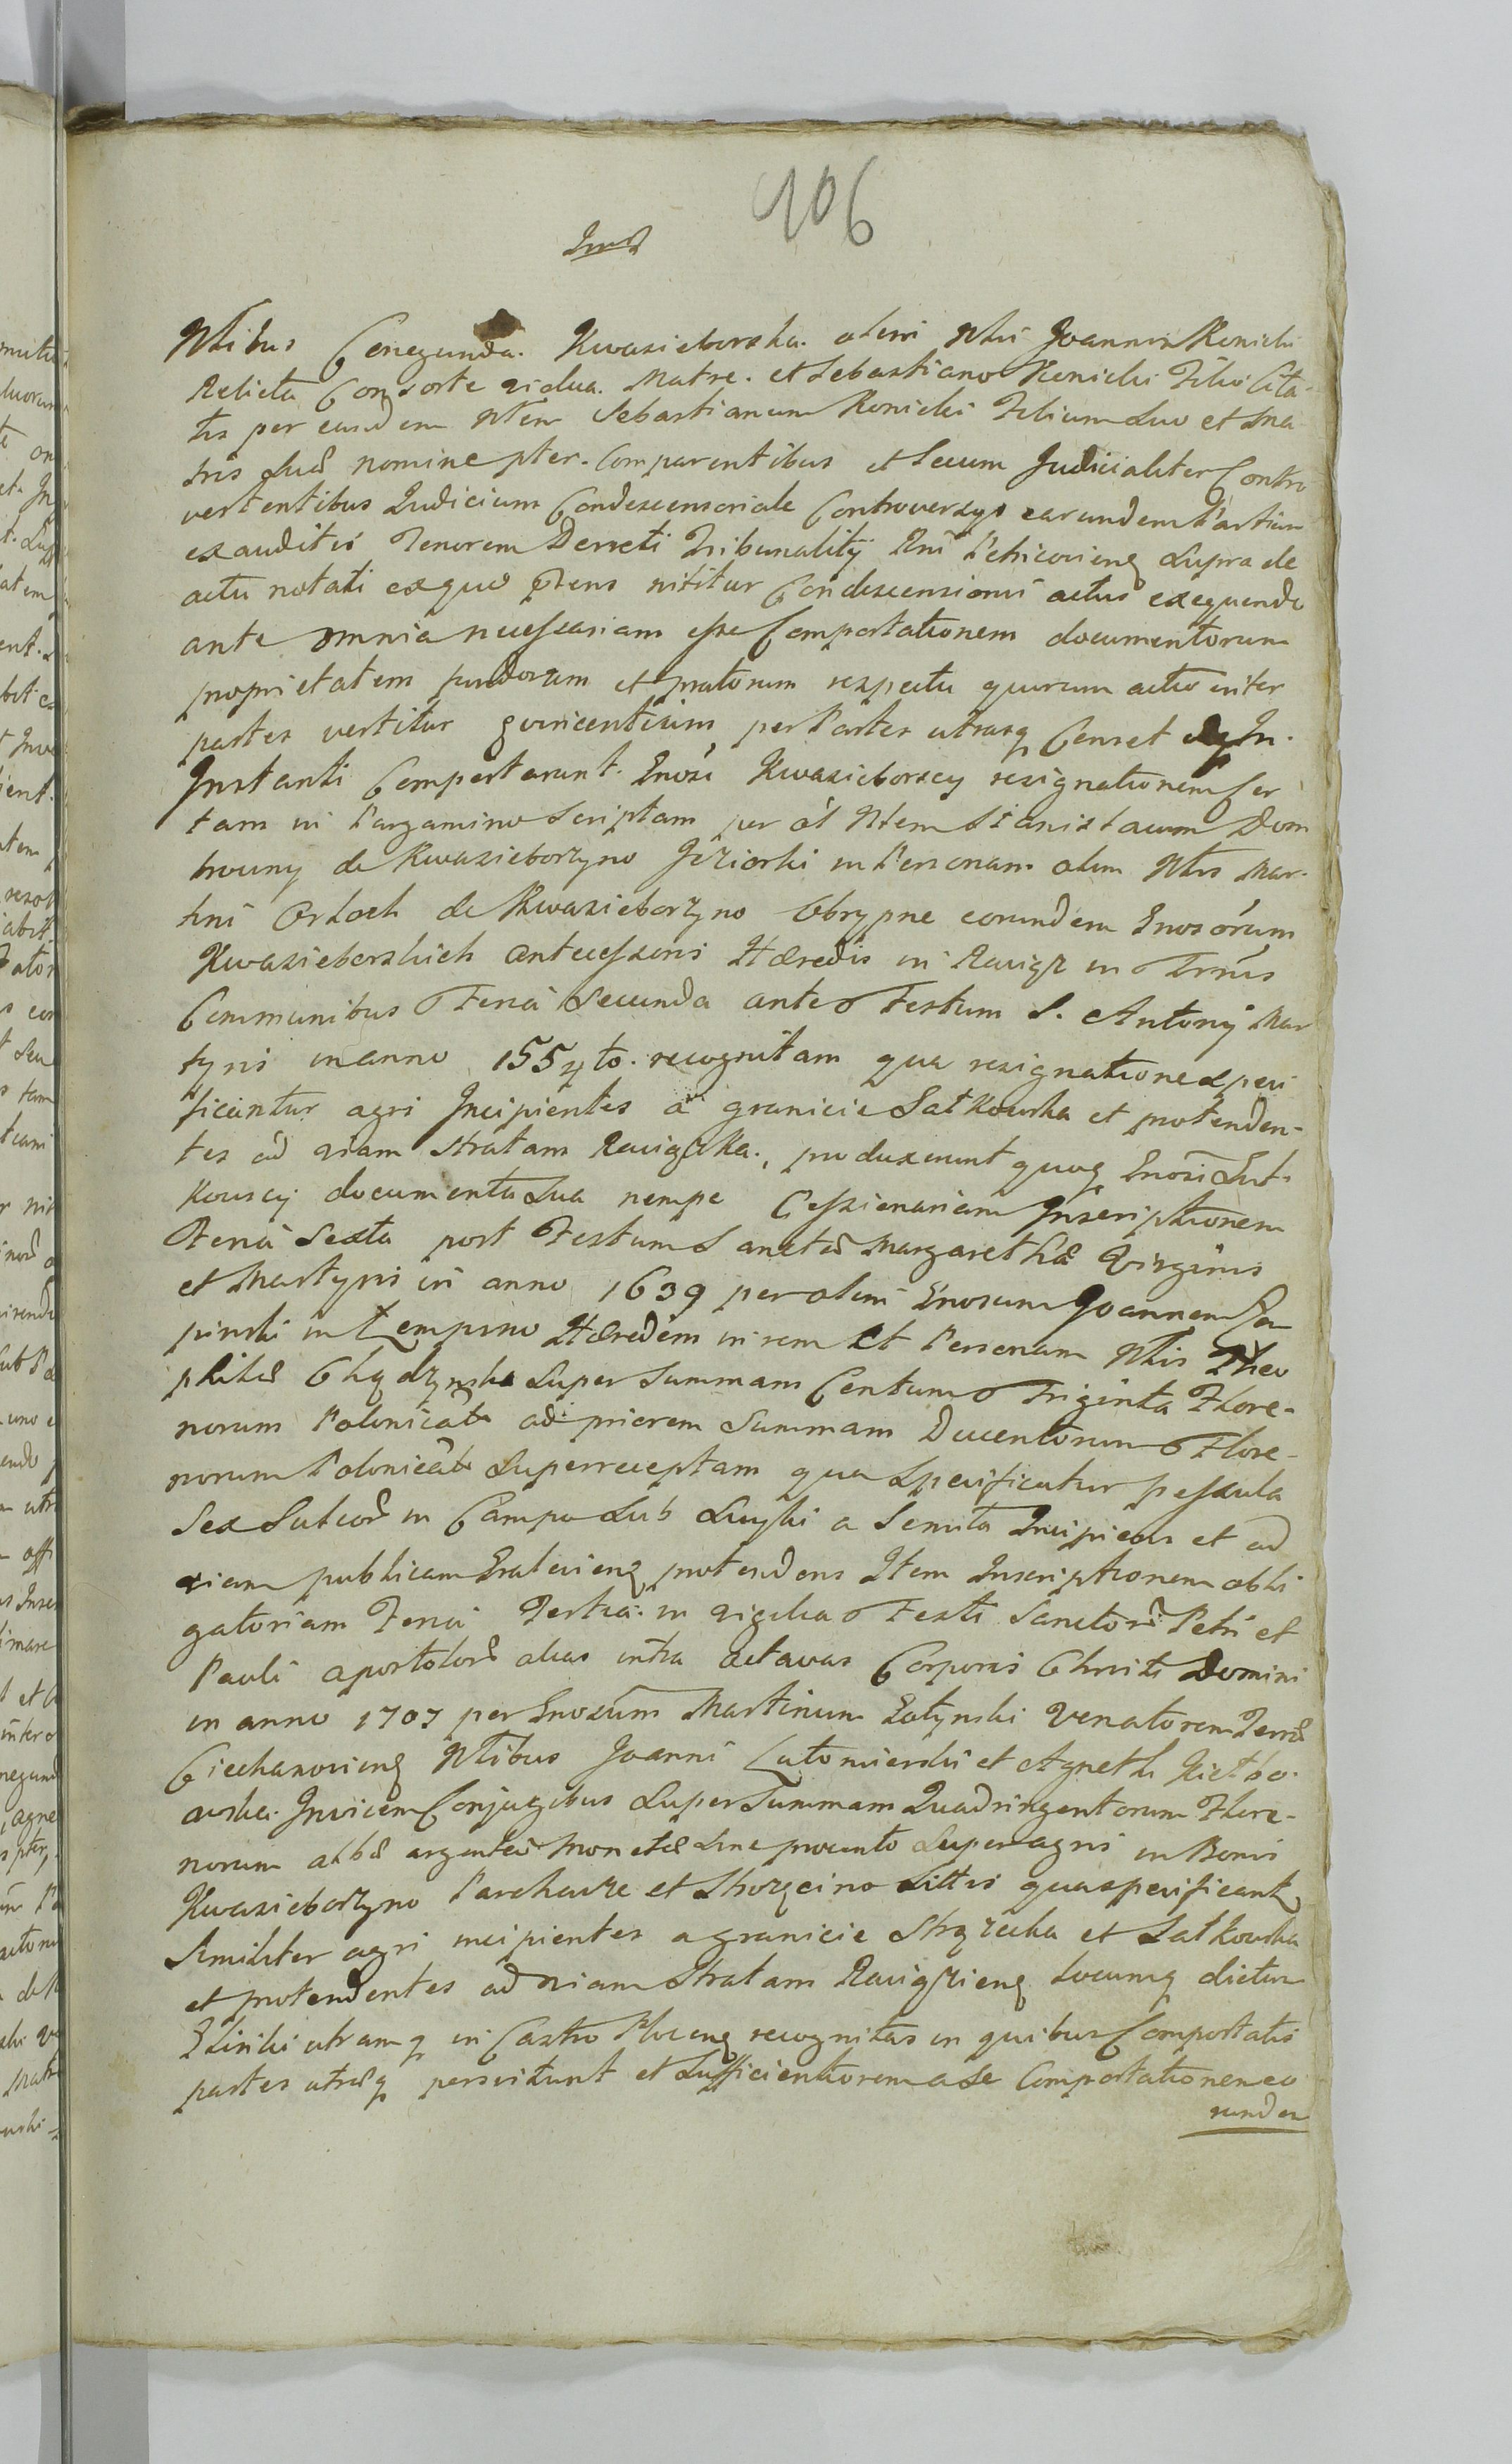 106
Ntibus Conegunda. Kwasieborska. olim Ntis Joannis Konicki
Relicta Consorte vidua. Matre. et Sebastiano Konicki Filio Cita-
tis per eundem Ntem Sebastianum Konicki Filium Suo et Ma
tris Suæ nomine pter. Comparentibus et Secum Judicialiter Contro
vertentibus Judicium Condescensoriale Controversys earundem Partium
exauditis Tenorem Decreti Tribunalitÿ Rni Petricoviens Supra de
actu notati ex quo pñens nititur Condescensionis actus exequendo
ante omnia necessariam esse Comportationem documentorum
proprietatem fundorum et pratorum respectu quorum actio inter
partes vertitur per Partes utrasq Censet
Instanti Comportarunt. Gnosi Kwasieborscy resignationem Cer
tam in Pargamino Scriptam per ol Ntem Stanislaum Dom
de Kwasieborzyno Jeziorki in Personam olim Ntis Mar-
tini Orlach de Kwasieborzyno Obrypne eorundem Gnosórum
Kwasieborskich antecessoris Hæredis in Raciąż in Trnis
Communibus Feria Secunda ante Festum S. Antonÿ Mar
tyris in anno 1554to. recognitam qua resignatione Speci
ficantur agri Incipientes a granicie Satkowska et protenden-
tes ad viam stratam Raciązka., produxerunt quoq Gnosi Sut-
kowscy documenta Sua nempe Cessionariam Inscriptionem
Feria Sexta post Festum Sanctæ Margarethæ Virginis
et Martyris in anno 1639 per olim Gnosum Joannem Łem
pinski in Łempino Hæredem in rem et Personam Ntis Theo
philæ Chądzynska Super Summam Centum Triginta Flore-
norum Polonicalm ad priorem Summam Ducentorum Flore-
norum Polonicalm Superreceptam qua Specificatur pessula
Sex Sulcor in Campo Sub a Semita Incipiens et ad
viam publicam protendens Item Inscriptionem obli
gatoriam Feria Tertia. in vigilia Festi Sanctor Petri et
Pauli apostolor alias intra octavas Corporis Christi Domini
in anno 1707 per Gnosum Martinum Venatorem Terræ
Ciechanoviens Ntibus Joanni Lutomierski et Agneth Kiełbo-
wska. Invicem Conjugibus Super Summam Quadringentorum Flore-
norum albæ argenteæ Monetæ Sine procento Super agris in Bonis
Kwasieborzyno Parchauze et Skorzcino Sittis qua specificant
Similiter agri incipientes a granicie et Satkowska
et protendentes ad viam Stratam Raciążiens Locumq dictum
utramq in Castro Plocens recognitas in quibus Comportatis
partes utræq persistunt et Sufficientiorem a Se Comportationem eo
rundem